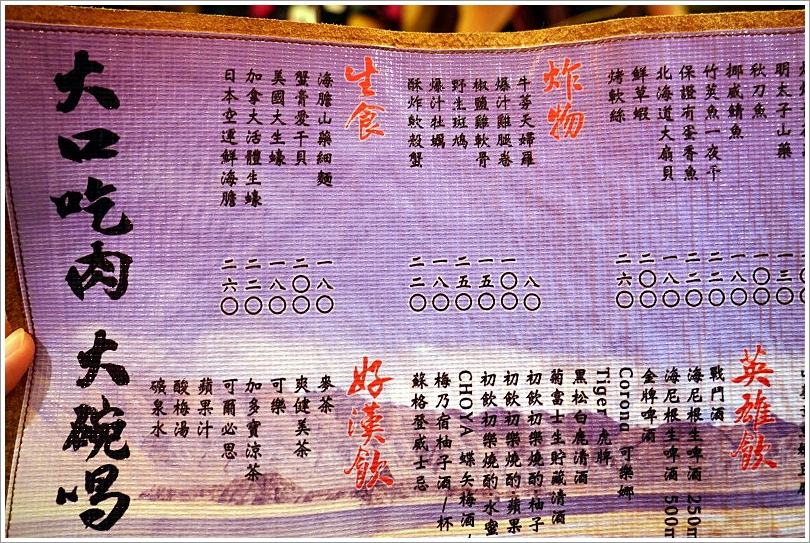 明太子山藥 一三〇
秋刀魚 一〇〇
挪威鯖魚 一八〇
竹莢魚一夜干 二二〇
保證有蛋香魚 二二〇
北海道大扇貝 一八〇
鮮草蝦 二〇〇
烤軟絲 二六〇
炸物
牛蒡天婦羅 八〇
爆汁雞腿卷 一〇〇
椒鹽雞軟骨 一五〇
野生斑鳩 二五〇
爆汁牡蠣 一八〇
酥炸軟殼蟹 二二〇
生食
海膽山藥細麵 一八〇
蟹膏愛干貝 二〇〇
美國大生蠔 一八〇
加拿大活體生蠔 二二〇
日本空運鮮海膽 二六〇
英雄飲
戰鬥酒
海尼根生啤酒 250m
海尼根生啤酒 500m
金牌啤酒
Corona 可樂娜
Tiger 虎牌
黑松白鹿清酒
菊富士生貯藏清酒
初飲初樂燒酌‧柚子
初飲初樂燒酌‧蘋果
初飲初樂燒酌‧水蜜
CHOYA 蝶矢梅酒/
梅乃宿柚子酒/杯
蘇格登威士忌
好漢飲
麥茶
爽健美茶
可樂
加多寶涼茶
可爾必思
蘋果汁
酸梅湯
礦泉水
大口吃肉 大碗喝